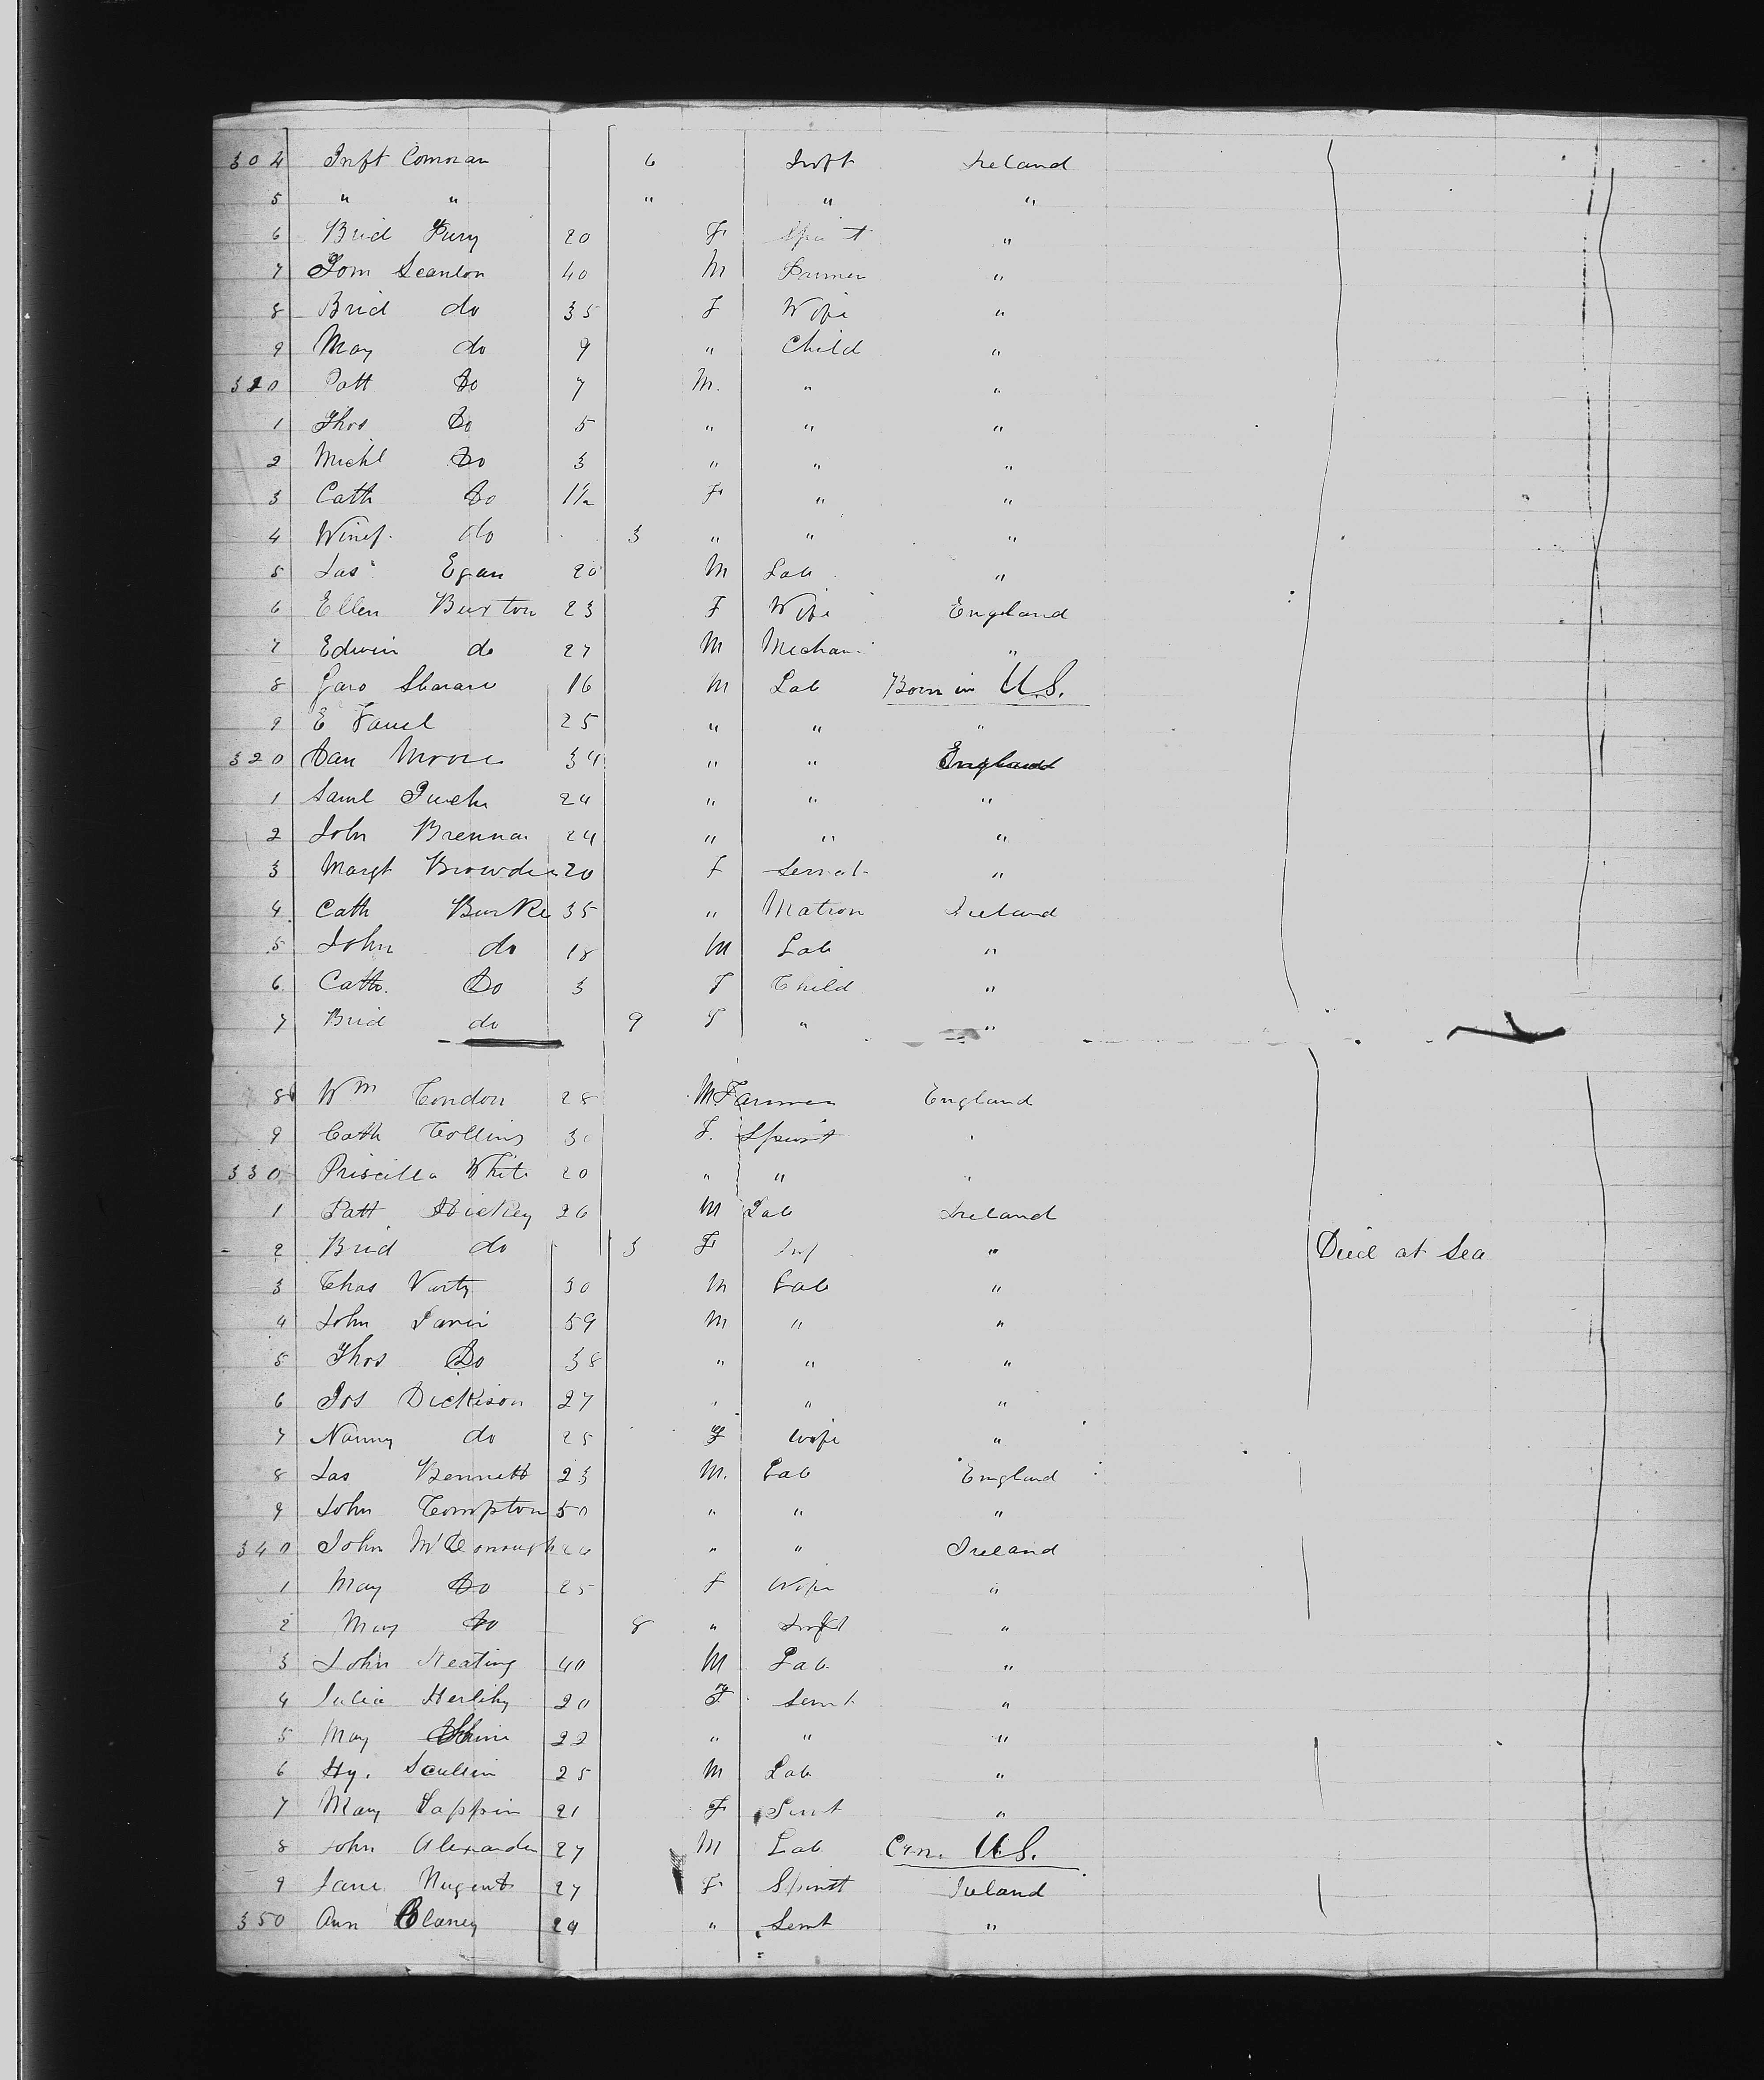 304 Inft Connran 6 Inft Ireland
5 " " " " "
6 Brid Fury 20 F "
7 Tom Scanlon 40 M Farmer "
8 Brid do 35 F Wife "
9 May do 9 " Child "
310 Patt Do 7 M. " "
1 Thos Do 5 " " "
2 Michl Do 3 " " "
3 Cath Do 1½ F " "
4 Winef. do 3 " " "
5 Jas Egan 20 M Lab "
6 Ellen Burton 23 F Wife England
7 Edwin do 27 M Mechan. "
8 16 M Lab Born in U.S.
9 E 25 " " "
320 Dan Moore 34 " " England
1 Saml 24 " " "
2 John Brennan 24 " " "
3 Margt Browder 20 F Servat "
4 Cath Burke 35 " Matron Ireland
5 John do 18 M Lab "
6 Cath. Do 3 F Child "
7 Brid do 9 F " "
8 Wm Condon 28 M Farmer England
9 Cath Collins 30 F. Spinst "
330 Priscilla White 20 " " "
1 Patt Hickey 26 M Lab Ireland
2 Brid do 3 F Inf " Died at Sea
3 Chas 30 M Lab "
4 John Davis 59 M " "
5 Thos Do 38 " " "
6 Jos Dickison 27 " " "
7 Nanny do 25 F Wife "
8 Jas Bennett 23 M. Lab England
9 John Compton 50 " " "
340 John McDonough 26 " " Ireland
1 May Do 25 F Wife "
2 May Do 8 " Inft "
3 John Keating 40 M Lab. "
4 Julia Herlihy 20 F Servt "
5 May Shine 22 " " "
6 Hy. Scullin 25 M Lab "
7 Mary Tappin 21 F Servt "
8 John Alexander 27 M Lab Czn. U.S.
9 Jane Nugent 27 F Spinstt Ireland
350 Ann Blaney 24 " Servt "